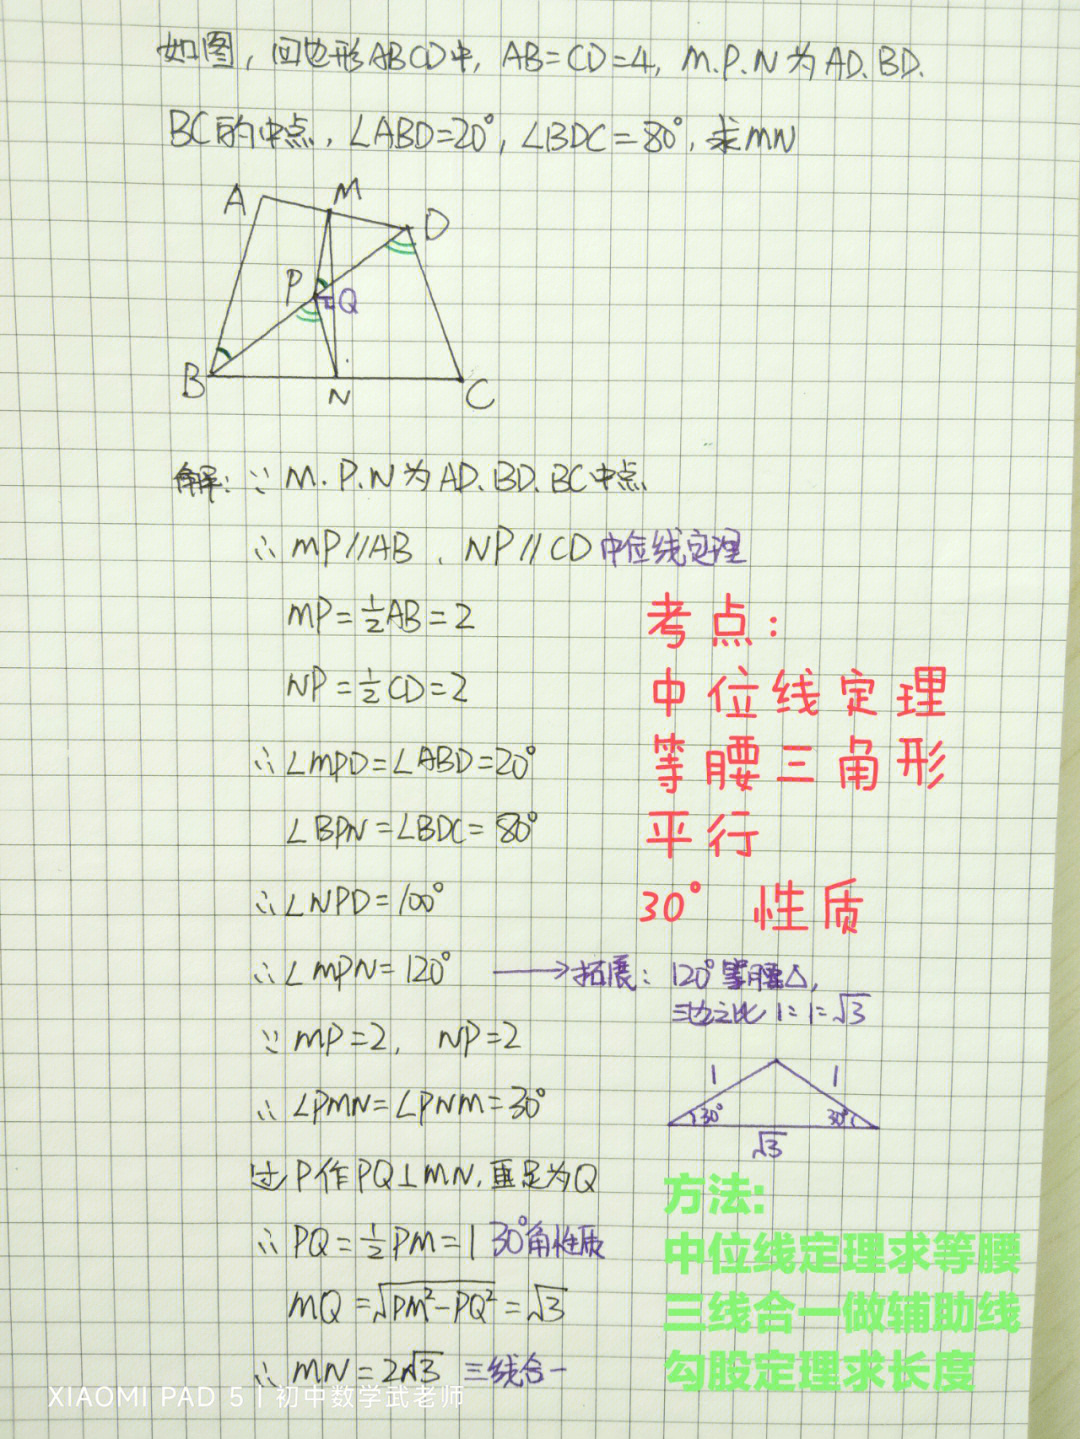 如图，四边形ABCD中，AB=CD=4，M.P.N为AD、BD、
BC的中点，∠ABD=20°，∠BDC=80°，求MN
A
M
D
P
Q
B
N
C
解：∵ M.P.N为AD、BD、BC中点
∴ MP//AB、NP//CD 中位线定理
MP=½AB=2
NP=½CD=2
∴∠MPD=∠ABD=20°
∠BPN=∠BDC=80°
∴∠NPD=100°
∴∠MPN=120° → 拓展：120°等腰△，
三边之比 1:1:√3
∵ MP=2, NP=2
∴ ∠PMN=∠PNM=30°
1
1
30°
30°
√3
过P作PQ⊥MN，垂足为Q
∴ PQ=½PM=1 30°角性质
MQ=√PM²-PQ²=√3
∴ MN=2√3 三线合一
考点：
中位线定理
等腰三角形
平行
30° 性质
方法:
中位线定理求等腰
三线合一做辅助线
勾股定理求长度
XIAOMI PAD 5 | 初中数学武老师